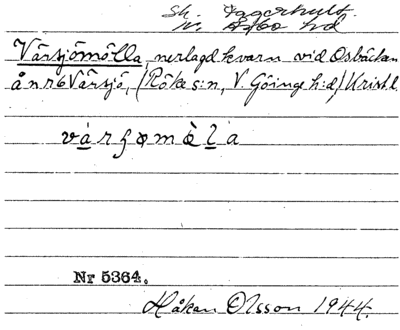 Sk. Aggarhult
N. Åsbo hd
Värsjömölla, nerlagd kvarn vid Osbäcken
å nr 6 Värsjö, (Röke s:n, V. Göinge h:d) Krist.l.
Nr 5364.
Håkan Olsson 1944.